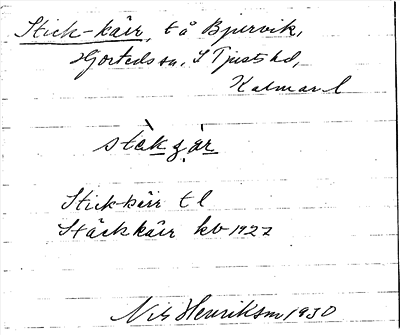 Stick-kärr, t å Bjursvik,
Hjorteds sn, S Tjusts hd,
Kalmar l
stèkʒàr
Stickkärr t l
Stäckkärr kb 1927
Nils Henriksson 1930